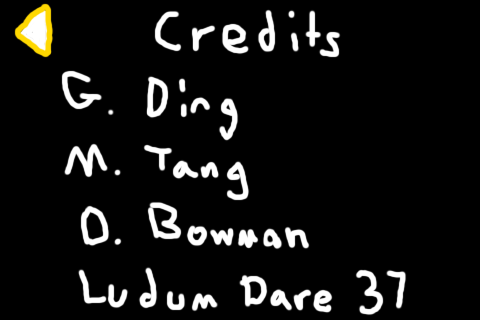 Credits
G. Ding
M. Tang
D. Bowman
Ludum Dare 37